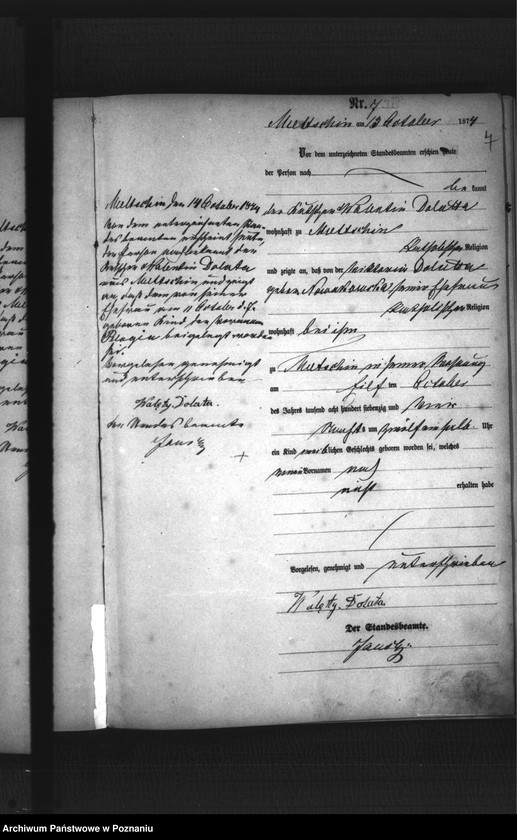 Nr. 7
Mieltschin am 13 October 1874
7
Vor dem unterzeichneten Standesbeamten erschien heute
der Person nach
bekannt
der Kutscher Valentin Dolatta
wohnhaft zu Mieltschin
katholischer Religion
und zeigte an, daß von der Viktoria Dolatta
geborn Nowakowski seiner Ehefrau
katholischer Religion
wohnhaft bei ihm
zu Mieltschin in seiner Wohnung
am elf ten October
des Jahres tausend acht hundert siebenzig und vier
Nachts um zwölfeinhalb Uhr
ein Kind weiblichen Geschlechts geboren worden sei, welches
Vornamen noch
nicht erhalten habe
Vorgelesen, genehmigt und unterschrieben
Walęty Dolata
Der Standesbeamte.
Mieltschin den 14 October 1874
Vor dem unterzeichneten Stan-
desbeamten erscheint heute
der Person nach bekannt der
Kutscher Valentin Dolata
aus Mieltschin und zeigt
an, daß dem von seiner
Ehefrau am 11 October d. J.
geborenen Kind der Vornamen
Pelagia beigelegt worden
sei.
Vorgelesen genehmigt
und unterschrieben
Walęty Dolata
Der Standesbeamte
Archiwum Państwowe w Poznaniu